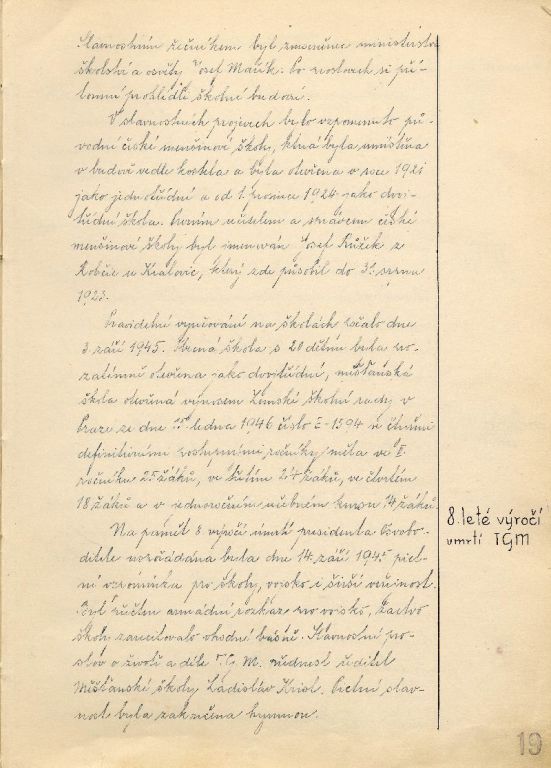 Slavnostním řečníkem byl zmocněnec ministerstva
školství a osvěty Josef Mařík. Po proslovech si pří-
tomní prohlédli školní budovi.
V slavnostních projevech bylo vzpomenuto pů-
vodní české menšinové školy, která byla umístěna
v budově vedle kostela a byla otevřena v roce 1921
jako jednotřídní a od 1. prosince 1924 jako dvou-
třídní škola. Prvním učitelem a správcem české
menšinové školy byl jmenován Josef Růžek z
u Kralovic, který zde působil do 31. srpna
1923.
Pravidelné vyučování na školách začalo dne
3. září 1945. Obecná škola s 20 dětmi byla pro-
zatímně otevřena jako dvoutřídní, měšťanská
škola otevřená výnosem Zemské školní rady v
Praze ze dne 15. ledna 1946 číslo I-1594 se čtyřmi
definitivními postupnými ročníky měla ve II.
ročníku 25 žáků, ve třetím 24 žáků, ve čtvrtém
18 žáků a v jednoročním učebném kursu 14 žáků.
Na paměť 8. výročí úmrtí presidenta Osvobo-
ditele uspořádána byla dne 14. září 1945 piet-
ní vzpomínka pro školy, vojsko i širší veřejnost.
Byl přečten armádní rozkaz pro vojsko, žactvo
školy zarecitovalo vhodné básně. Slavnostní pro-
slov o životě a díle T. G. M. přednesl ředitel
Měšťanské školy Ladislav Krisl. Pietní slav-
nost byla zakončena hymnou.
8. leté výročí
úmrtí TGM
19